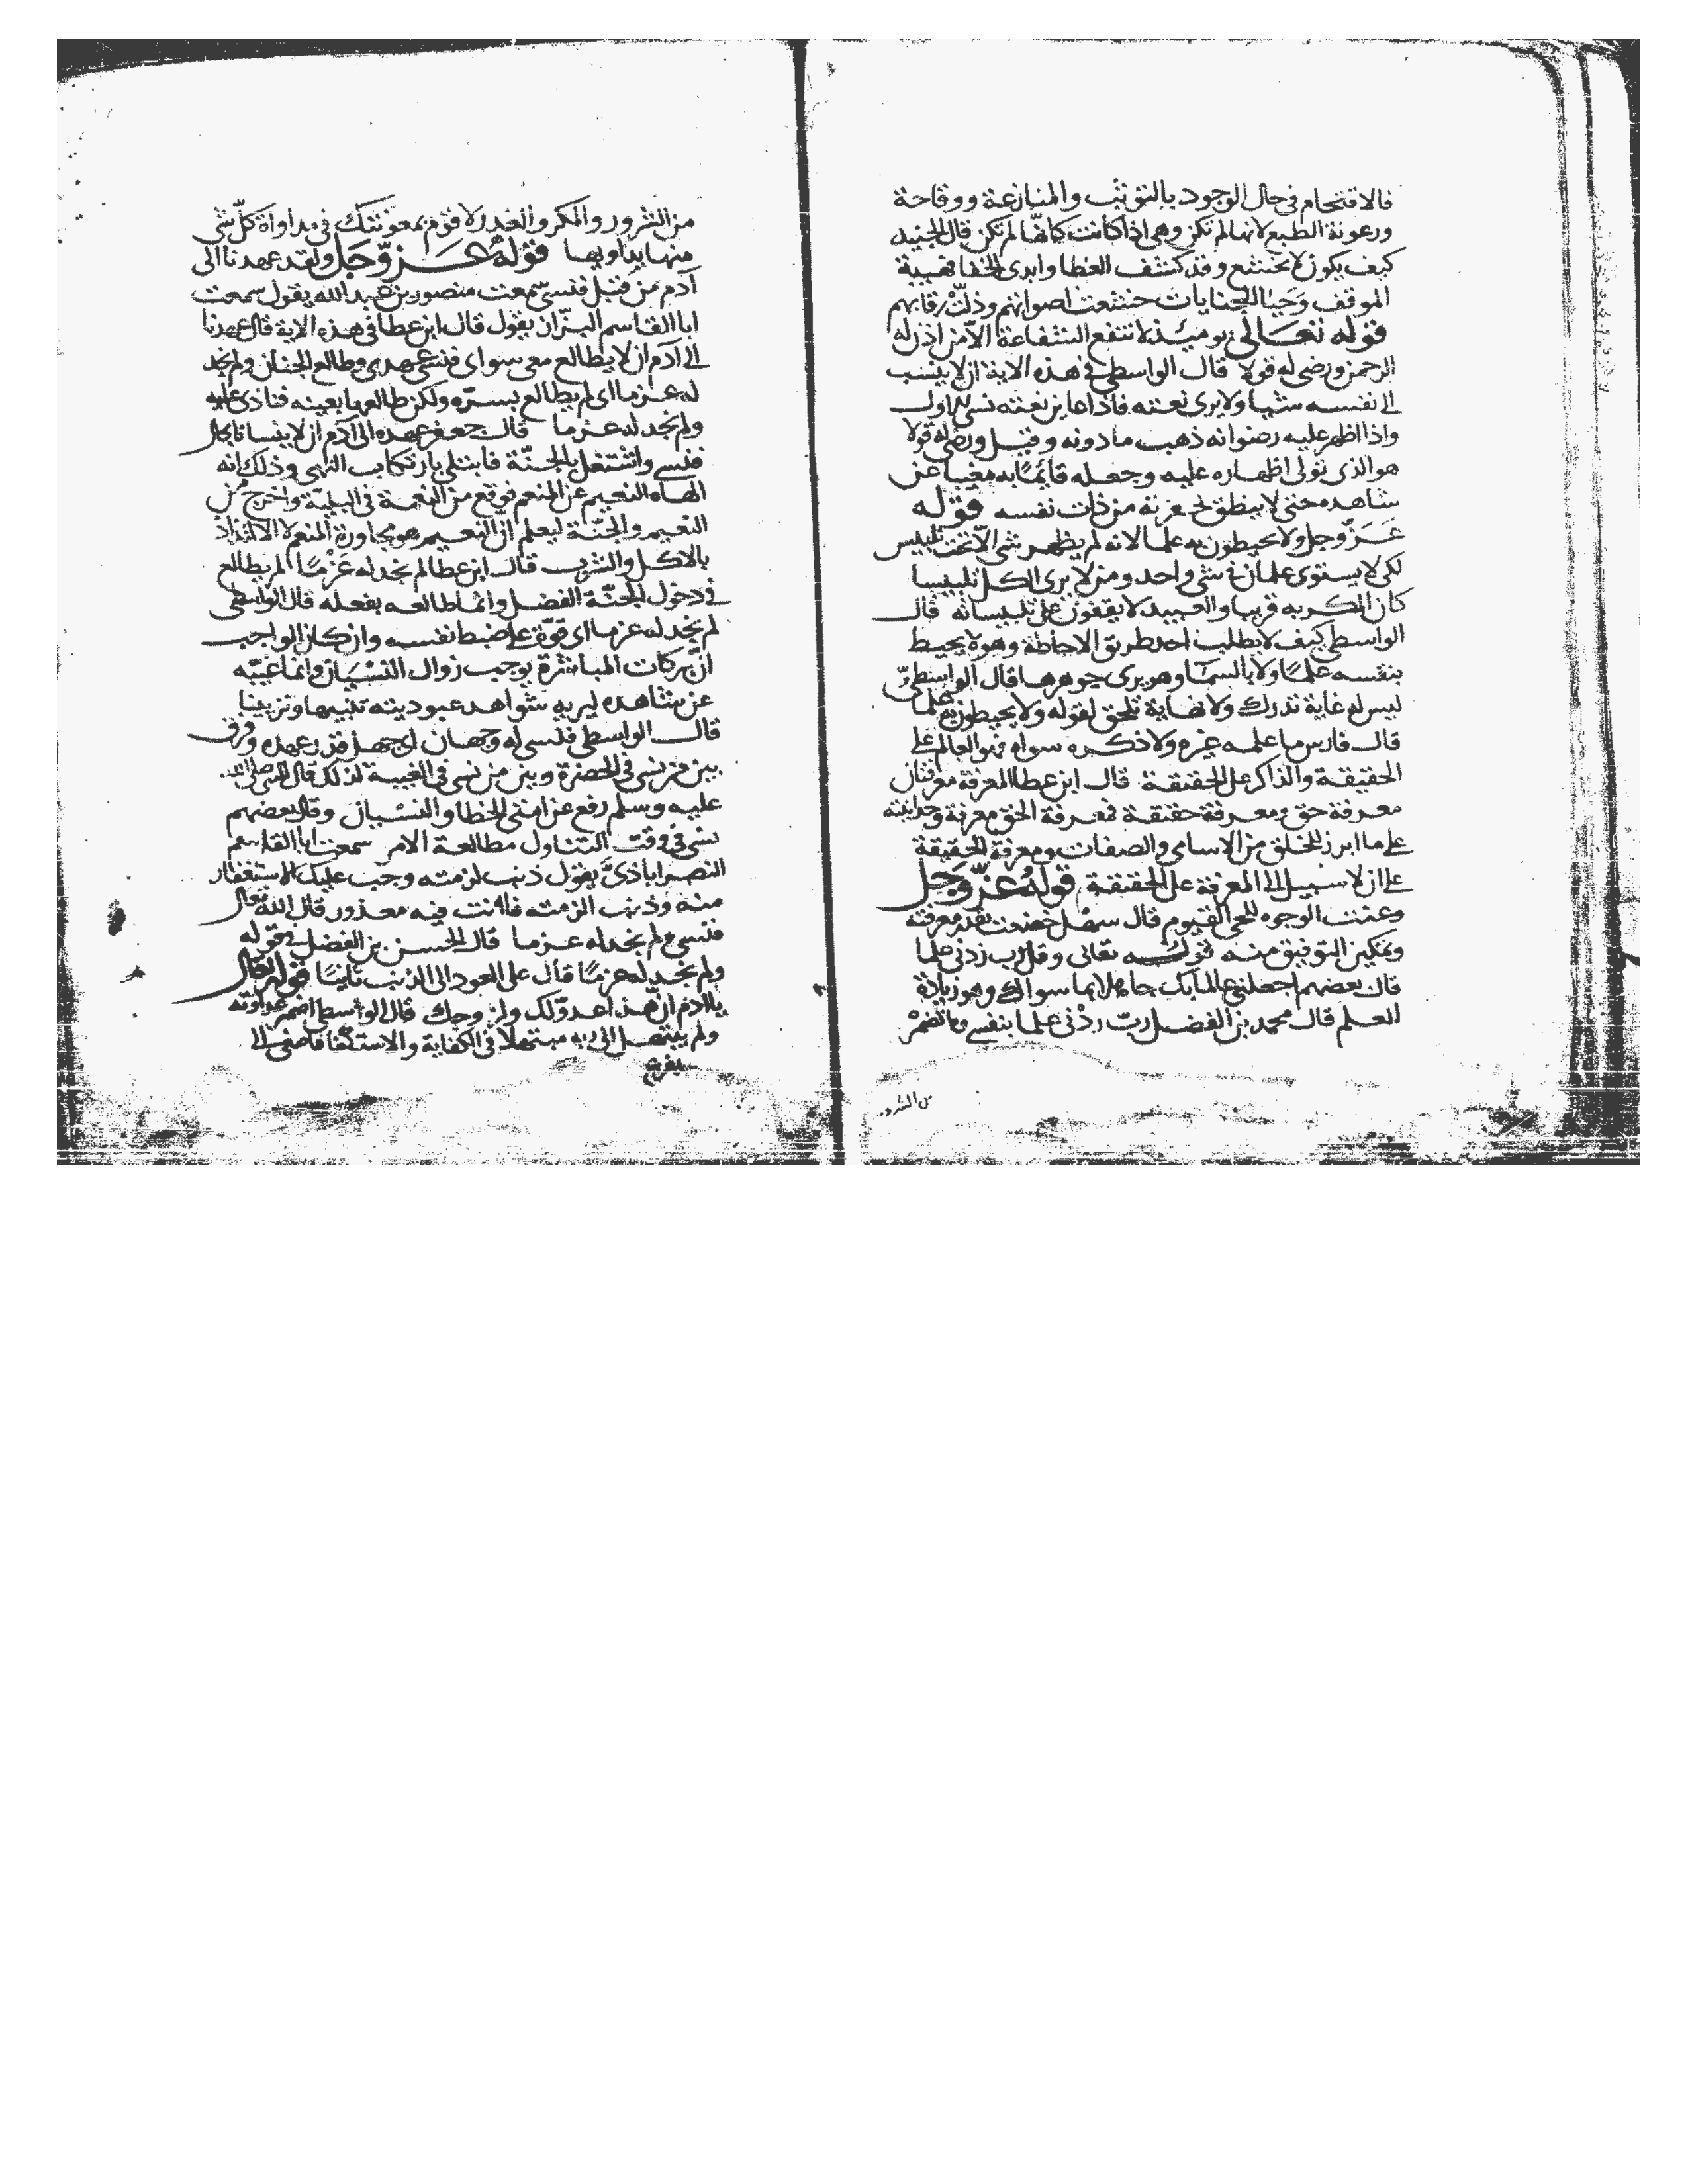 فالاقتحام في حال الوجود بالتوثب والمنازعة ووقاحة
ورعونة الطبع لانها لم تكن وهى اذا كانت كانها لم تكن قال الجنيد
كيف يكون لا تخشع وقد كشف الغطا وابدى الخفا فهيبة
الموقف وحيا الجنايات خشعت اصواتهم وذلت رقابهم
قوله تعالى يوميذ لا تنفع الشفاعة الا من اذن له
الرحمن ورضى له قولا قال الواسطي في هذه الاية ان لا ينسب
الى نفسه شيا ولا يرى نعته فاذا عاين نعته نسى
واذا اظهر عليه رضوانه ذهب ما دونه وقيل ورضى له قولا
هو الذى تولى اظهاره عليه وجعله قايما به مغيبا عن
شاهده حتى لا ينطق من ذات نفسه قوله
عز وجل ولا يحيطون به علما لانه لم يظهر شى الا تحت تلبيس
لكى لا يستوى علمان في شى واحد ومن لا يرى الكل تلبيسا
كان المكر به قريبا والعبيد لا يقفون على تلبيساته قال
الواسطي كيف لا يطلب احد طريق الاحاطة وهو لا يحيط
بنفسه علما ولا بالسما وهو يرى جوهرها قال الواسطي
ليس له غاية تدرك ولا نهاية تلحق لقوله ولا يحيطون به علما
قال فارس ما علمه غيره ولا ذكره سواه فهو العالم على
الحقيقة والذاكر على الحقيقة قال ابن عطا المعرفة معرفتان
معرفة حق ومعرفة حقيقة فمعرفة الحق معرفة وحدانيته
على ما ابرز للخلق من الاسامى والصفات ومعرفة الحقيقة
على ان لا سبيل الى المعرفة على الحقيقة قوله عز وجل
وعنت الوجوه للحى القيوم قال سهل خضعت بقدر معرفته
وتمكين التوفيق منه قوله تعالى وقل رب زدنى علما
قال بعضهم اجعلنى عالما بك جاهلا بما سواك وهو زيادة
العلم قال محمد بن الفضل رب زدنى علما بنفسى وما تضمره
من الشرور
من الشرور والمكر والغدر لاقوم بمعونتك في مداواة كل شى
منها بداويها قوله عز وجل ولقد عهدنا الى
آدم من قبل فنسى سمعت منصور بن عبد الله يقول سمعت
ابا القاسم البزان يقول قال ابن عطا في هذه الاية قال عهدنا
الى آدم ان لا يطالع معى سواى فنسى عهدى وطالع الجنان ولم نجد
له عزما اى لم يطالع بسره ولكن طالعها بعينه فنادى عليه
ولم نجد له عزما قال جعفر عهده الى آدم ان لا ينسانا بحال
فنسى واشتغل بالجنة فابتلى بارتكاب النهى وذلك انه
الهاه النعيم عن المنعم فوقع من النعمة في البلية واخرج من
النعيم والجنة ليعلم ان النعيم هو مجاورة المنعم لا الالتذاذ
بالاكل والشرب قال ابن عطا لم نجد له عزما لم يطالع
في دخول الجنة الفضل وانما طالعه بفعله قال الواسطي
لم نجد له عزما اى قوة على ضبط نفسه وان كان الواجب
ان بركات المباشرة يوجب زوال النسيان وانما غيبه
عن مشاهده ليريه شواهد عبوديته تنبيها وتزيينا
قال الواسطي فنسى له وجهان اى جهل قدر عهده وفرق
بين من نسى في الحضرة وبين من نسى في الغيبة لذلك قال النبى صلى الله
عليه وسلم رفع عن امتى الخطا والنسيان وقال بعضهم
نسى في وقت التناول مطالعة الامر سمعت ابا القاسم
النصراباذى يقول ذنب لزمته وجب عليك الاستغفار
منه وذنب الزمته فانت فيه معذور قال الله تعالى
فنسى ولم نجد له عزما قال الحسن بن الفضل في قوله
ولم نجد له عزما قال على العود الى الذنب ثانيا قوله تعالى
يا ادم ان هذا عدو لك ولزوجك قال الواسطي اضمر عداوته
ولم يبتهل الى ربه مبتهلا في الكفاية والاستكفا فاصغى الى